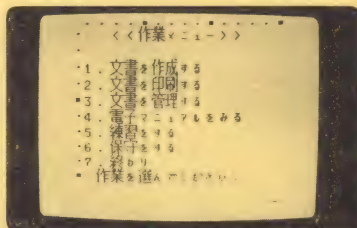 <<作業メニュー>>
1. 文書を作成する
2. 文書を印刷する
3. 文書を管理する
4. 電子マニュアルをみる
5. 練習をする
6. 保守をする
7. 終わり
作業を選んでください.